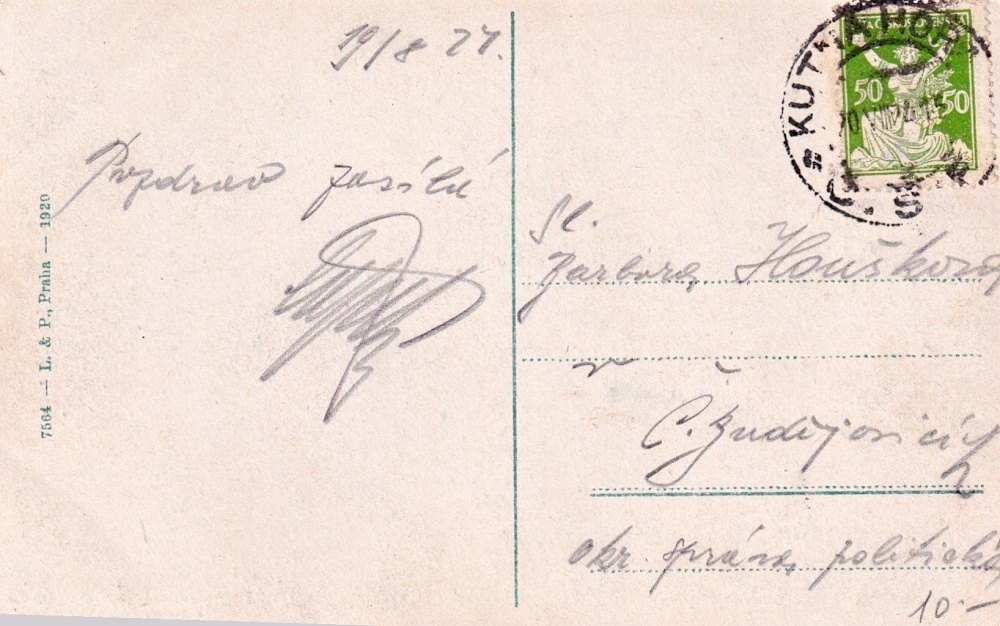 19/8 24.
Pozdrav zasílá
7564 — L. & P., Praha — 1920
KUTNÁ HORA
Č.S.R.
50 50
Sl.
Barbora Houšková
v
Č. Budějovicích
okr. správa politická
10.—